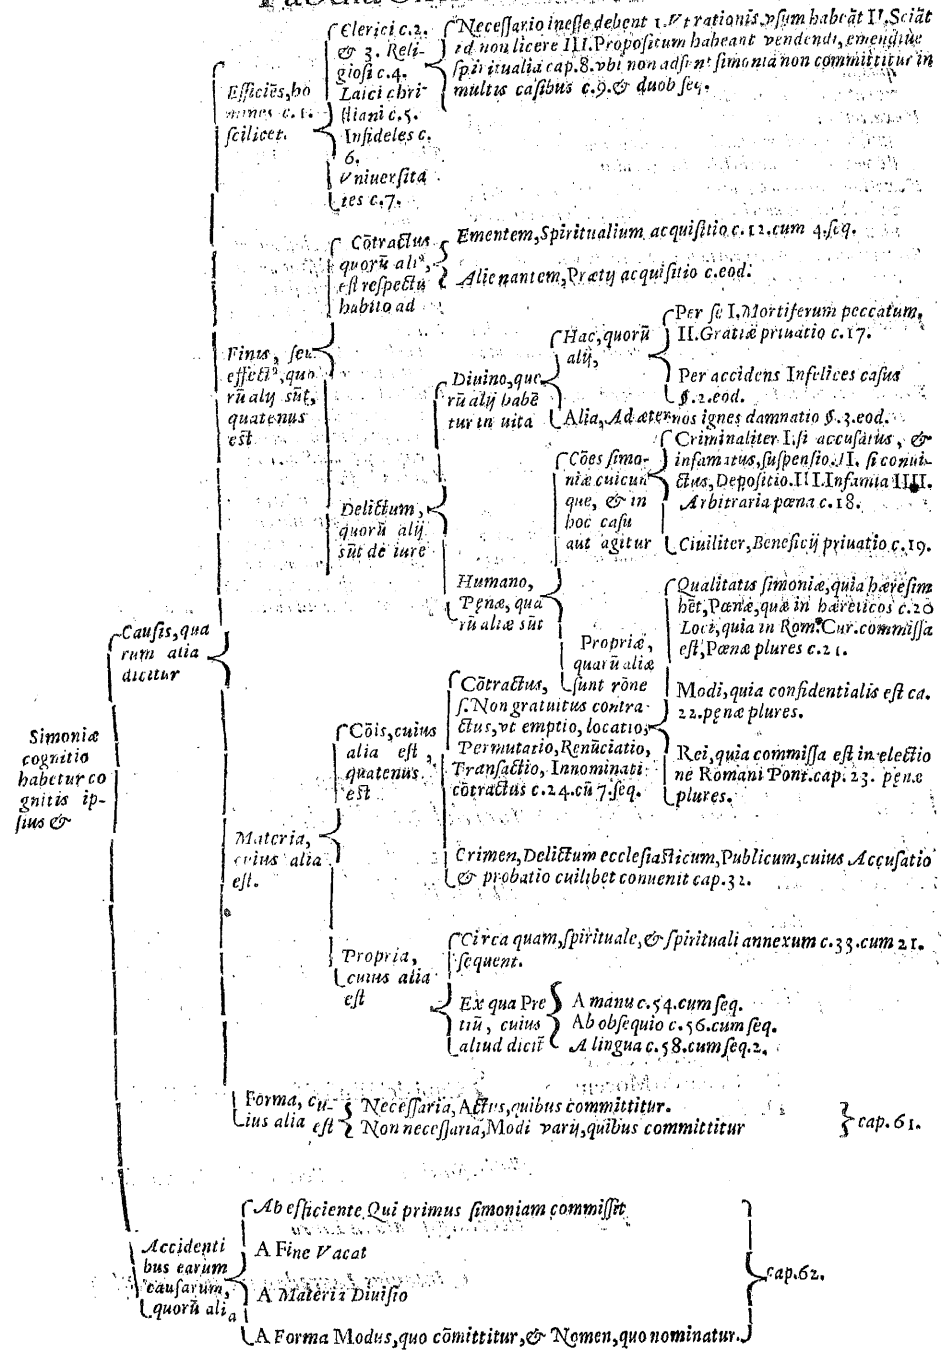 Clerici c.2.
& 3. Reli-
giosi c.4.
Laici chri-
stiani c.5.
Infideles c.
6.
Vniuersita
tes c.7.
Necessario inesse debent 1. Vt rationis vsum habeāt II. Sciāt
id non licere III. Propositum habeant vendendi, emendiue
spiritualia cap.8. vbi non adsint simonia non committitur in
multis casibus c.9. & duob seq.
Efficiēs, ho
mines c.1.
scilicet.
Cōtractus
quorū ali⁹,
est respectu
habito ad
Ementem, Spiritualium acquisitio c.12. cum 4. seq.
Alienantem, Prætij acquisitio c.eod.
Finis, seu
effect⁹, quo
rū alij sūt,
quatenus
est
Delictum,
quorū alij
sūt de iure
Diuino, quo
rū alij habē
tur in uita
Hac, quorū
alij,
Per se I. Mortiferum peccatum,
II. Gratiæ priuatio c.17.
Per accidens Infelices casus
§.2.eod.
Alia, Ad æternos ignes damnatio §.3.eod.
Humano,
Pęnæ, qua
rū aliæ sūt
Cōes simo-
niæ cuicun
que, & in
hoc casu
aut agitur
Criminaliter I. si accusatus, &
infamatus, suspensio. II. si conui-
ctus, Depositio. III. Infamia IIII.
Arbitraria pœna c.18.
Ciuiliter, Beneficij priuatio c.19.
Propriæ,
quarū aliæ
sunt rōne
Qualitatis simoniæ, quia hæresim
hēt, Pœnæ, quæ in hæreticos c.20
Loci, quia in Rom. Cur. commissa
est, Pœnæ plures c.21.
Modi, quia confidentialis est ca.
22. pęnæ plures.
Rei, quia commissa est in electio
ne Romani Pont. cap. 23. pęnæ
plures.
Causis, qua
rum alia
dicitur
Simoniæ
cognitio
habetur co
gnitis ip-
sius &
Materia,
cuius alia
est.
Cōis, cuius
alia est,
quatenus
est
Cōtractus,
s. Non gratuitus contra-
ctus, vt emptio, locatio,
Permutatio, Renūciatio,
Transactio, Innominati
cōtractus c.24. cū 7. seq.
Crimen, Delictum ecclesiasticum, Publicum, cuius Accusatio
& probatio cuilibet conuenit cap.32.
Propria,
cuius alia
est
Circa quam, spirituale, & spirituali annexum c.33. cum 21.
sequent.
Ex qua Pre
tiū, cuius
aliud dicit̄
A manu c.54. cum seq.
Ab obsequio c.56. cum seq.
A lingua c.58. cum seq.2.
Forma, cu-
ius alia est
Necessaria, Actus, quibus committitur.
Non necessaria, Modi varij, quibus committitur
cap.61.
Accidenti
bus earum
causarum,
quorū alia
Ab efficiente Qui primus simoniam commissit
A Fine Vacat
A Materia Diuisio
A Forma Modus, quo cōmittitur, & Nomen, quo nominatur.
cap.62.